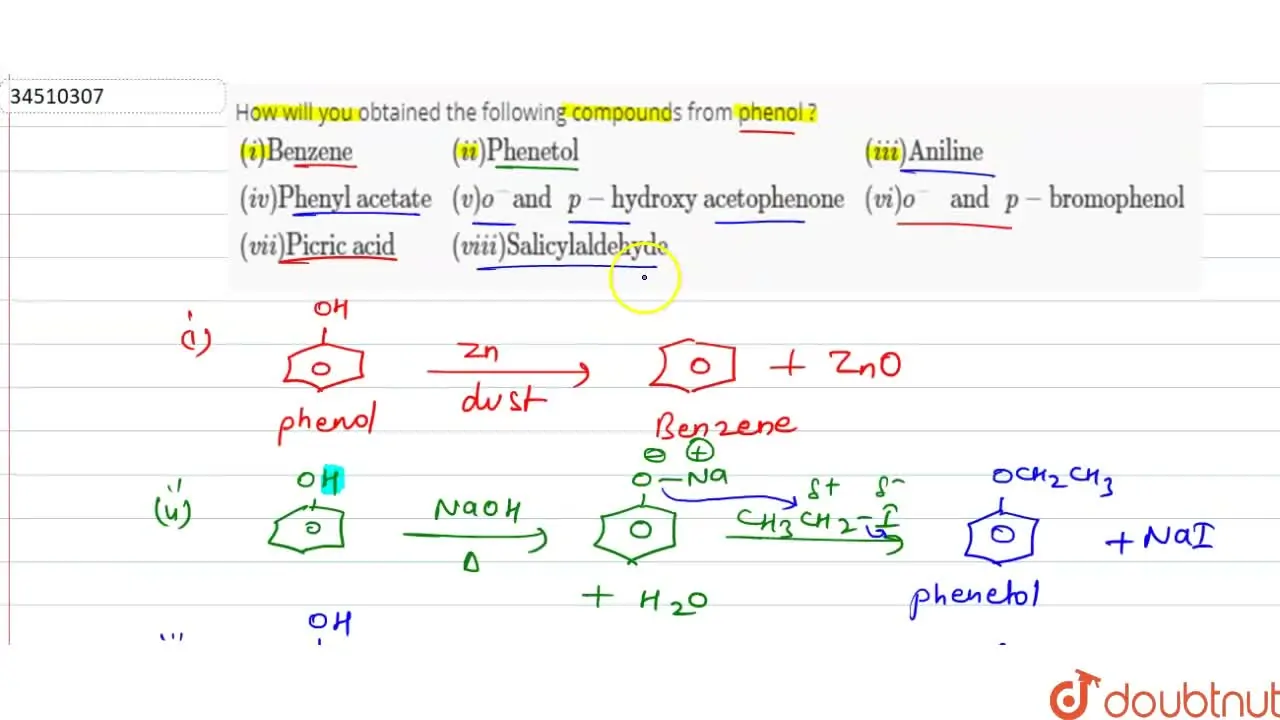 34510307
How will you obtained the following compounds from phenol ?
(i)Benzene (ii)Phenetol (iii)Aniline
(iv)Phenyl acetate (v)o⁻ and p − hydroxy acetophenone (vi)o⁻ and p − bromophenol
(vii)Picric acid (viii)Salicylaldehyde
(i) OH Zn dust + ZnO
phenol Benzene
(ii) OH NaOH Δ ⊖ ⊕ O—Na δ+ δ- CH3CH2–I OCH2CH3 + NaI
+ H2O phenetol
iii OH
doubtnut